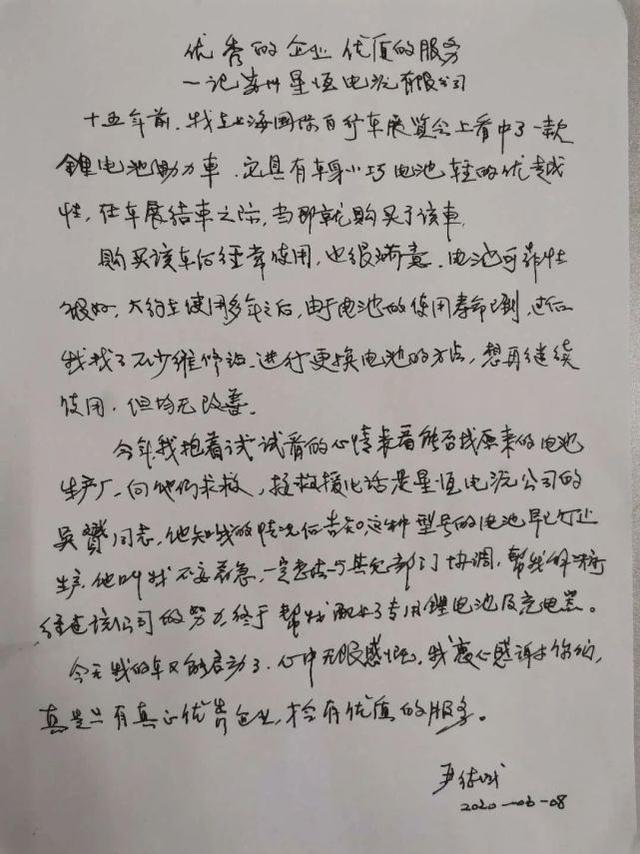 优秀的企业 优质的服务
—记苏州星恒电源有限公司
十五年前,我在上海国际自行车展览会上看中了一款
鋰电池助力車.它具有车身小巧电池轻的优越
性,在车展结束之际,当即就购买了该車.
购买该车后经常使用,也很满意.电池可靠性
很好,大约在使用多年之后,由于电池的使用寿命已到,过后
我找了不少维修站.进行更换电池的方法,想再继续
使用.但均无改善。
今年我抱着试试看的心情来看能否找原来的电池
生产厂,向他们求救,接救援电话是星恒电源公司的
吴赟同志,他知我的情况后告知这种型号的电池早已停止
生产.他叫我不要着急,一定会去与其它部门协调,帮我解决
经过该公司的努力,终于帮我配上了专用鋰电池及充电器。
今天我的车又能启动了.心中无限感慨,我衷心感谢你们,
真是只有真正优秀企业,才会有优质的服务。
2020-06-08